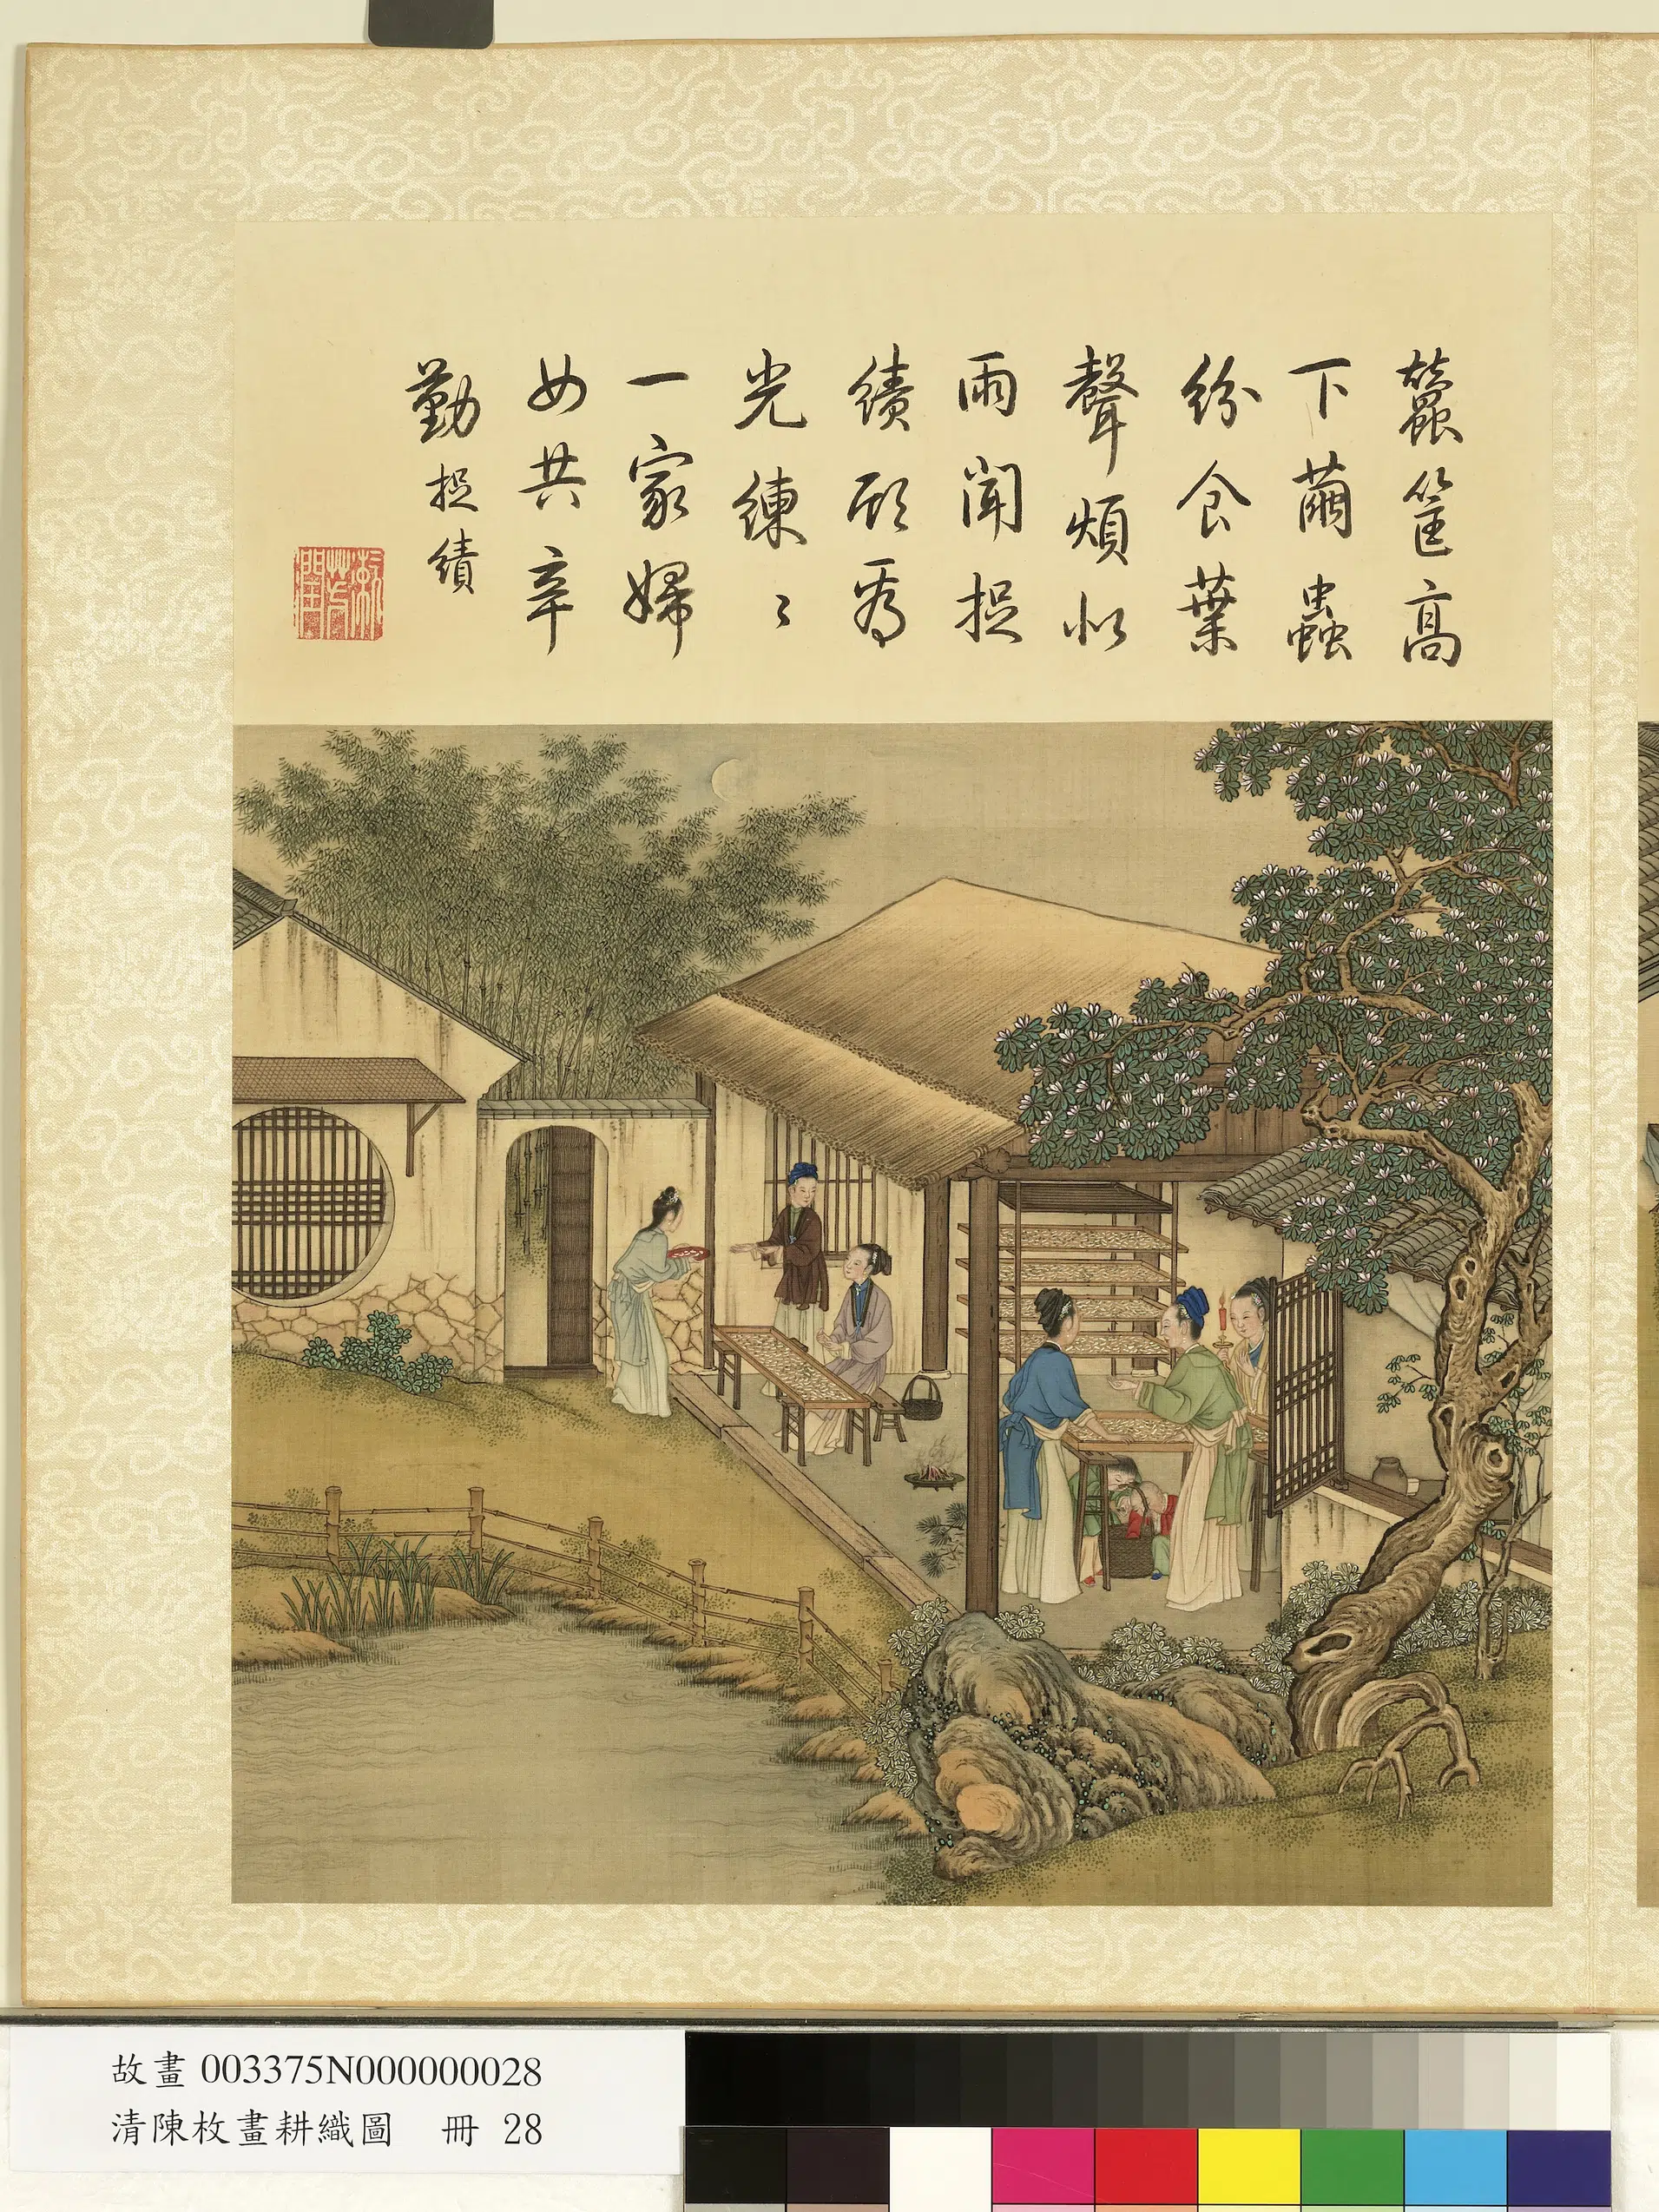 蠶筐高
下繭蟲
紛食葉
聲煩似
雨聞捉
績 為
光練〻
一家婦
女共辛
勤 捉績
漱芳潤
故畫 003375N000000028
清陳枚畫耕織圖 冊 28